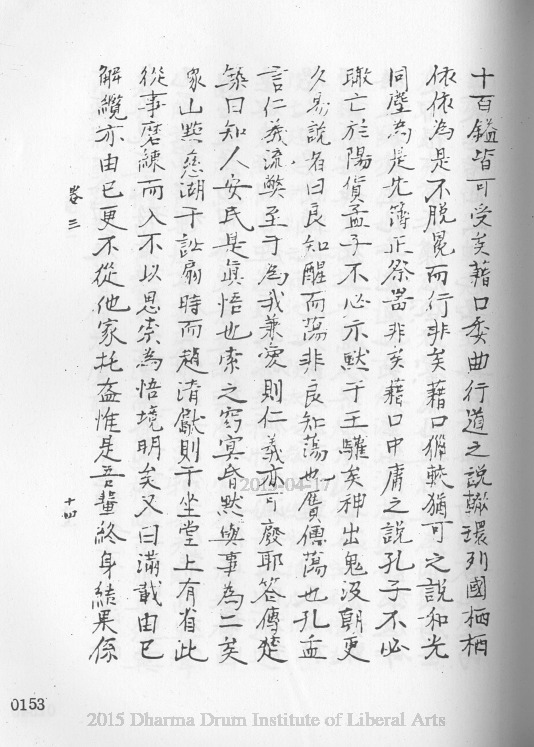 十百鎰皆可受矣藉口委曲行道之說轍環列國栖栖
依依為是不脫冕而行非矣藉口獵較猶可之說和光
同塵為是先簿正祭器非矣藉口中庸之說孔子不必
瞰亡於陽貨孟子不必示默于王驩矣神出鬼沒朝更
夕易說者曰良知醒而蕩非良知蕩也廣儒蕩也孔孟
言仁義流弊至于為我兼愛則仁義亦可廢耶答傅楚
築曰知人安民是真悟也索之窈冥昏默與事為二矣
象山點慈湖于訟扇時而趙清獻則于坐堂上有省此
從事磨練而入不以思索為悟境明矣又曰滿載由已
解纜亦由已更不從他家托盔惟是吾輩終身結果係
卷三
十四
0153
2015-04-17
2015 Dharma Drum Institute of Liberal Arts